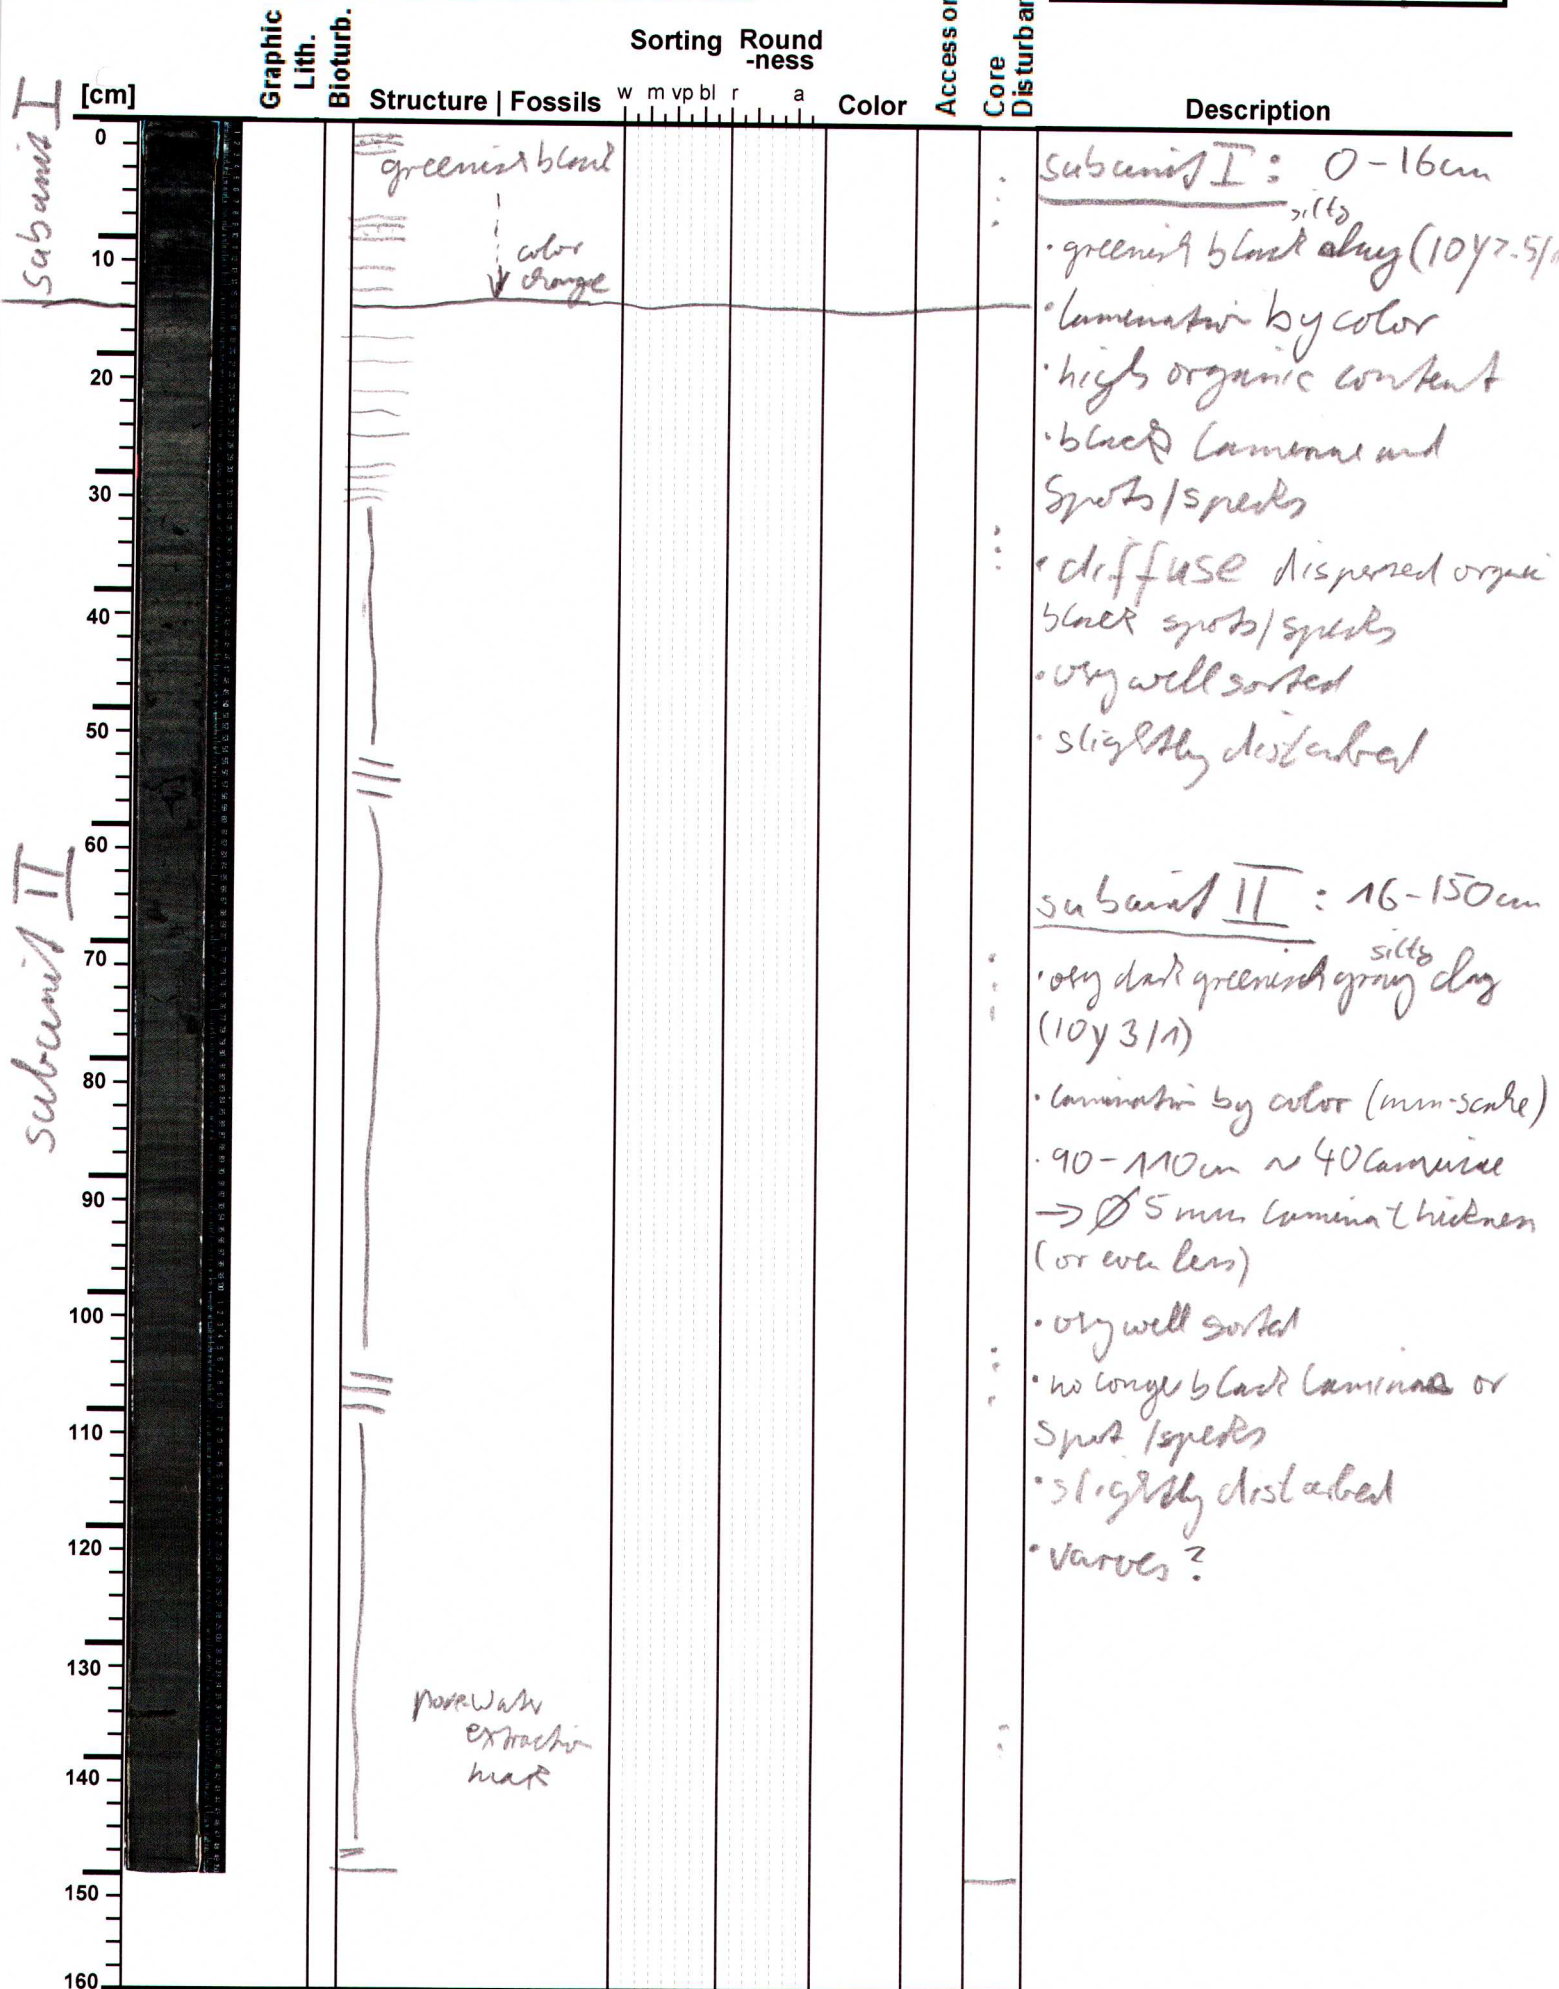 Graphic
Lith.
Bioturb.
Structure | Fossils
Sorting
Round
-ness
w m vp bl r a
Color
Accessor
Core
Disturban
Description
[cm]
subunit I
subunit II
0
10
20
30
40
50
60
70
80
90
100
110
120
130
140
150
160
greenish black
color
change
porewater
extraction
mark
subunit I : 0-16cm
silty
· greenish black clay (10Y2.5/1
· lamination by color
· high organic content
· black laminae and
spots/specks
· diffuse dispersed organic
black spots/specks
· very well sorted
· slightly disturbed
subunit II : 16-150cm
silty
· very dark greenish gray clay
(10y 3/1)
· lamination by color (mm-scale)
· 90-110cm ~ 40 laminae
→ Ø 5mm lamina thickness
(or even less)
· very well sorted
· no longer black laminae or
spot /specks
· slightly disturbed
· varves?